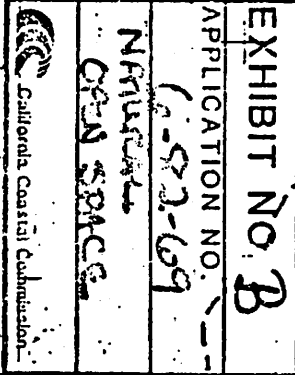 EXHIBIT NO. B
APPLICATION NO.
6-82-69
NATURAL
OPEN SPACE
California Coastal Commission